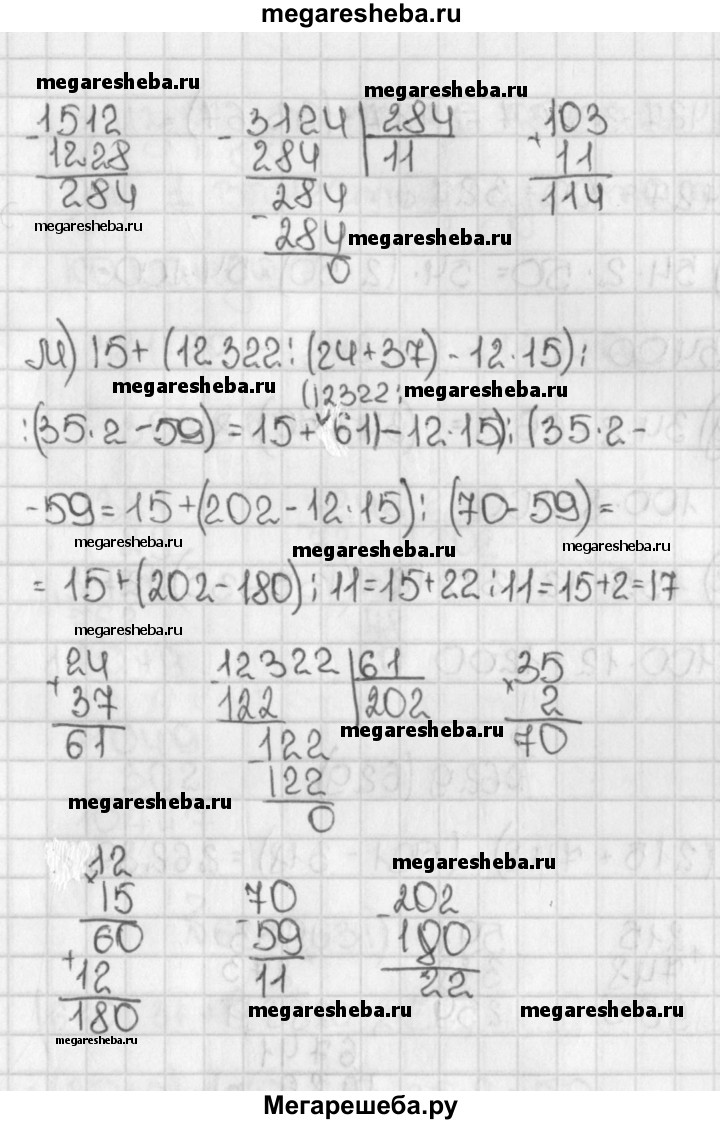 megaresheba.ru
megaresheba.ru
megaresheba.ru
1512 - 1228 = 284
3124 | 284
284 | 11
284
- 284
0
103
+ 11
114
megaresheba.ru
megaresheba.ru
м) 15+ (12322 : (24+37) - 12·15) :
megaresheba.ru
(12322 :
megaresheba.ru
: (35·2 - 59) = 15 + 61) - 12·15) : (35·2 -
- 59 = 15 + (202 - 12·15) : (70 - 59) =
megaresheba.ru
megaresheba.ru
megaresheba.ru
= 15 + (202 - 180) : 11 = 15 + 22 : 11 = 15 + 2 = 17
megaresheba.ru
24
+ 37
61
- 12322 | 61
122 | 202
- 122
122
0
35
× 2
70
megaresheba.ru
megaresheba.ru
megaresheba.ru
12
× 15
60
+ 12
180
70
- 59
11
- 202
180
22
megaresheba.ru
megaresheba.ru
megaresheba.ru
Мегарешеба.ру